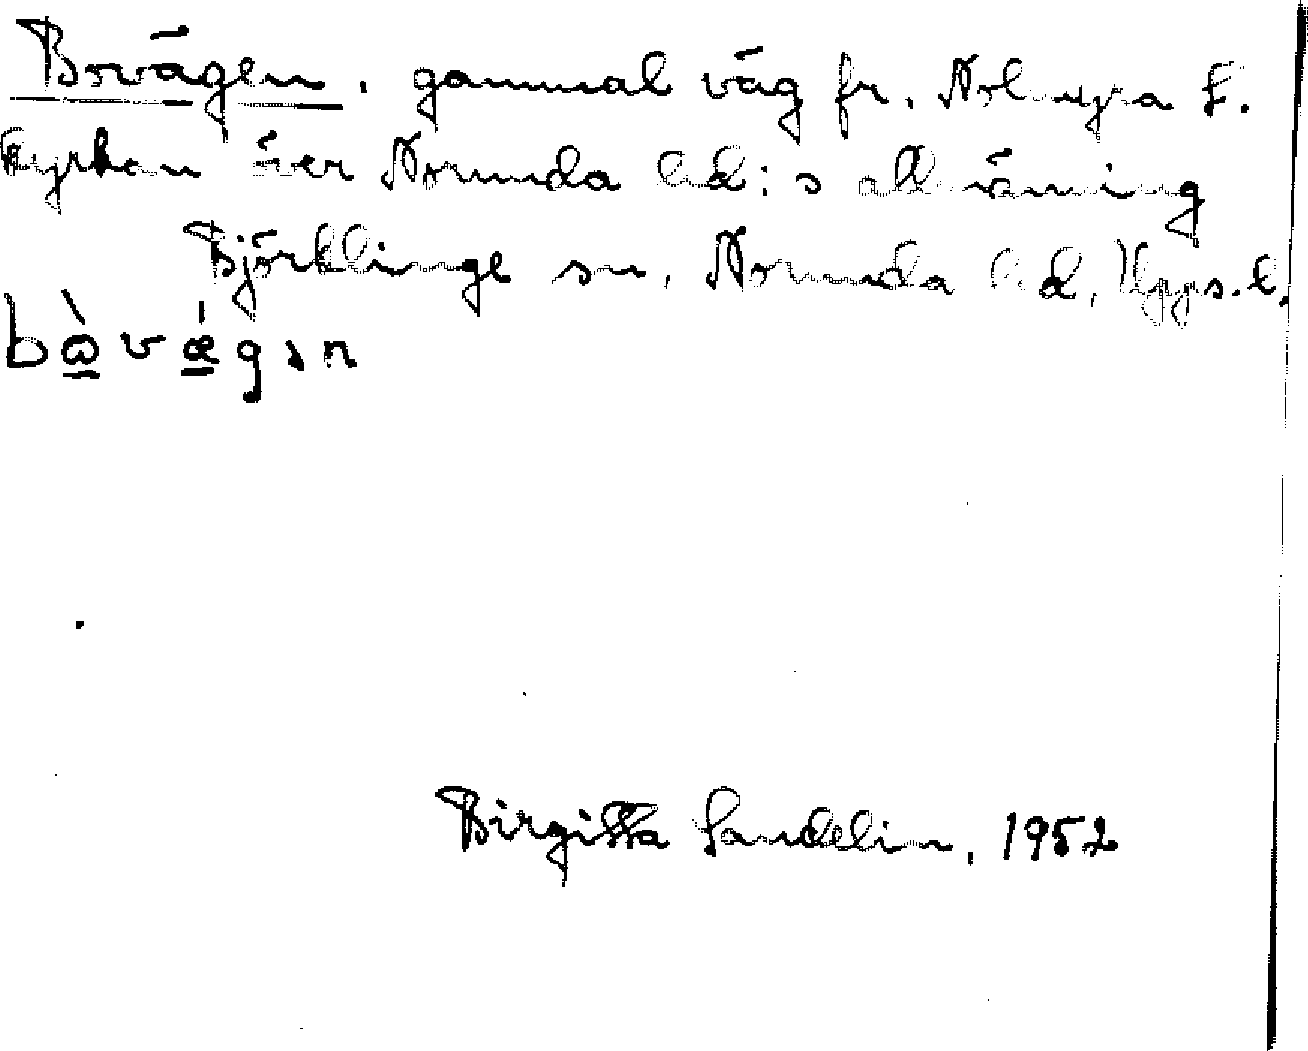 Bovägen, gammal väg fr. Nolmyra t.
kyrkan över Norunda hd:s allmänning
Björklinge sn, Norunda hd, Upps.l.
bὼvǽgən
Birgitta Sandelin, 1952